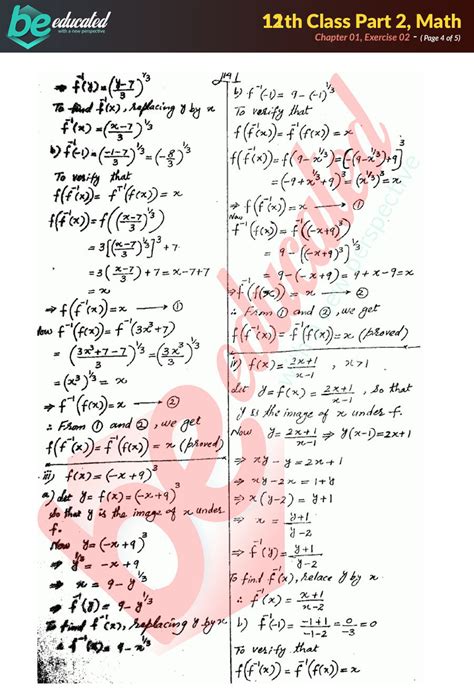 be educated
with a new perspective
12th Class Part 2, Math
Chapter 01, Exercise 02 - (Page 4 of 5)
⇒ f⁻¹(y) = ((y-7)/3)^(1/3)
To find f⁻¹(x), replacing y by x
f⁻¹(x) = ((x-7)/3)^(1/3)
b) f⁻¹(-1) = ((-1-7)/3)^(1/3) = (-8/3)^(1/3)
To verify that
f(f⁻¹(x)) = f⁻¹(f(x)) = x
f(f⁻¹(x)) = f(((x-7)/3)^(1/3))
= 3[((x-7)/3)^(1/3)]³ + 7
= 3((x-7)/3) + 7 = x-7+7
= x
⇒ f(f⁻¹(x)) = x → ①
Now f⁻¹(f(x)) = f⁻¹(3x³+7)
= ((3x³+7-7)/3)^(1/3) = (3x³/3)^(1/3)
= (x³)^(1/3) = x
⇒ f⁻¹(f(x)) = x → ②
∴ From ① and ②, we get
f(f⁻¹(x)) = f⁻¹(f(x)) = x (proved)
iii) f(x) = (-x+9)³
a) let y = f(x) = (-x+9)³
so that y is the image of x under
f.
Now y = (-x+9)³
⇒ y^(1/3) = -x+9
⇒ x = 9 - y^(1/3)
⇒ f⁻¹(y) = 9 - y^(1/3)
To find f⁻¹(x), replacing y by x
∴ f⁻¹(x) = 9 - x^(1/3)
b) f⁻¹(-1) = 9 - (-1)^(1/3)
To verify that
f(f⁻¹(x)) = f⁻¹(f(x)) = x
f(f⁻¹(x)) = f(9 - x^(1/3)) = (-(9 - x^(1/3)) + 9)³
= (-9 + x^(1/3) + 9)³ = (x^(1/3))³ = x
⇒ f(f⁻¹(x)) = x → ①
Now
f⁻¹(f(x)) = f⁻¹((-x+9)³)
= 9 - [(-x+9)³]^(1/3)
= 9 - (-x+9) = 9 + x - 9 = x
⇒ f⁻¹(f(x)) = x → ②
∴ From ① and ②, we get
f(f⁻¹(x)) = f⁻¹(f(x)) = x (proved)
iv) f(x) = (2x+1)/(x-1), x>1
Let y = f(x) = (2x+1)/(x-1), so that
y is the image of x under f.
Now y = (2x+1)/(x-1) ⇒ y(x-1) = 2x+1
⇒ xy - y = 2x+1
⇒ xy - 2x = 1+y
⇒ x(y-2) = y+1
⇒ x = (y+1)/(y-2)
⇒ f⁻¹(y) = (y+1)/(y-2)
To find f⁻¹(x), relace y by x
∴ f⁻¹(x) = (x+1)/(x-2)
b) f⁻¹(-1) = (-1+1)/(-1-2) = 0/-3 = 0
To verify that
f(f⁻¹(x)) = f⁻¹(f(x)) = x
be educated